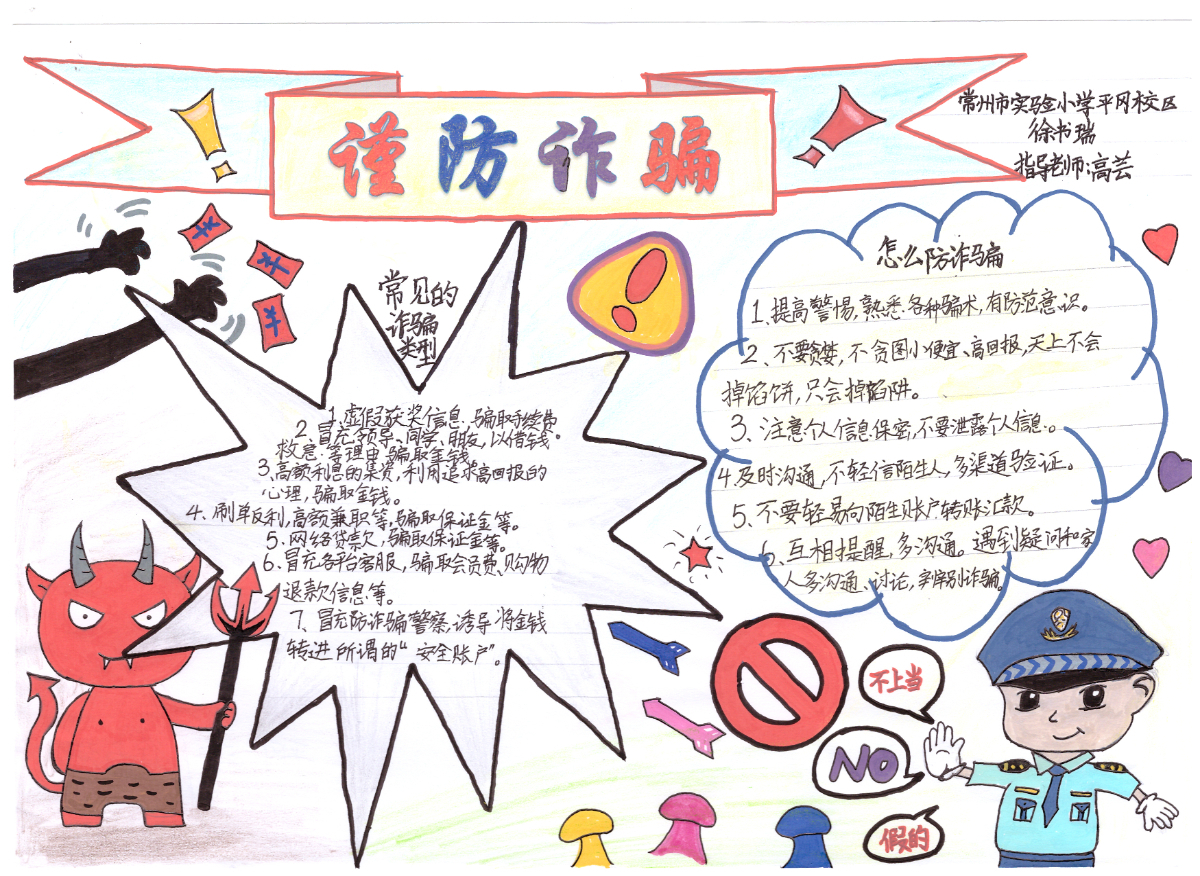 谨防诈骗
常州市实验小学平冈校区
徐书瑞
指导老师:高芸
常见的
诈骗
类型
1.虚假获奖信息,骗取手续费
2.冒充领导、同学、朋友,以借钱、
救急等理由骗取金钱
3.高额利息的集资,利用追求高回报的
心理,骗取金钱。
4、刷单返利,高额兼职等,骗取保证金等。
5、网络贷款,骗取保证金等。
6、冒充各平台客服,骗取会员费、购物
退款信息等。
7、冒充防诈骗警察.诱导将金钱
转进所谓的“安全账户”。
怎么防诈骗
1、提高警惕,熟悉各种骗术,有防范意识。
2、不要贪婪,不贪图小便宜、高回报,天上不会
掉馅饼,只会掉陷阱。
3、注意个人信息保密,不要泄露个人信息。
4.及时沟通,不轻信陌生人,多渠道验证。
5、不要轻易向陌生账户转账汇款。
6、互相提醒,多沟通。遇到疑问和家
人多沟通、讨论,辨别诈骗。
¥
¥
¥
不上当
NO
假的